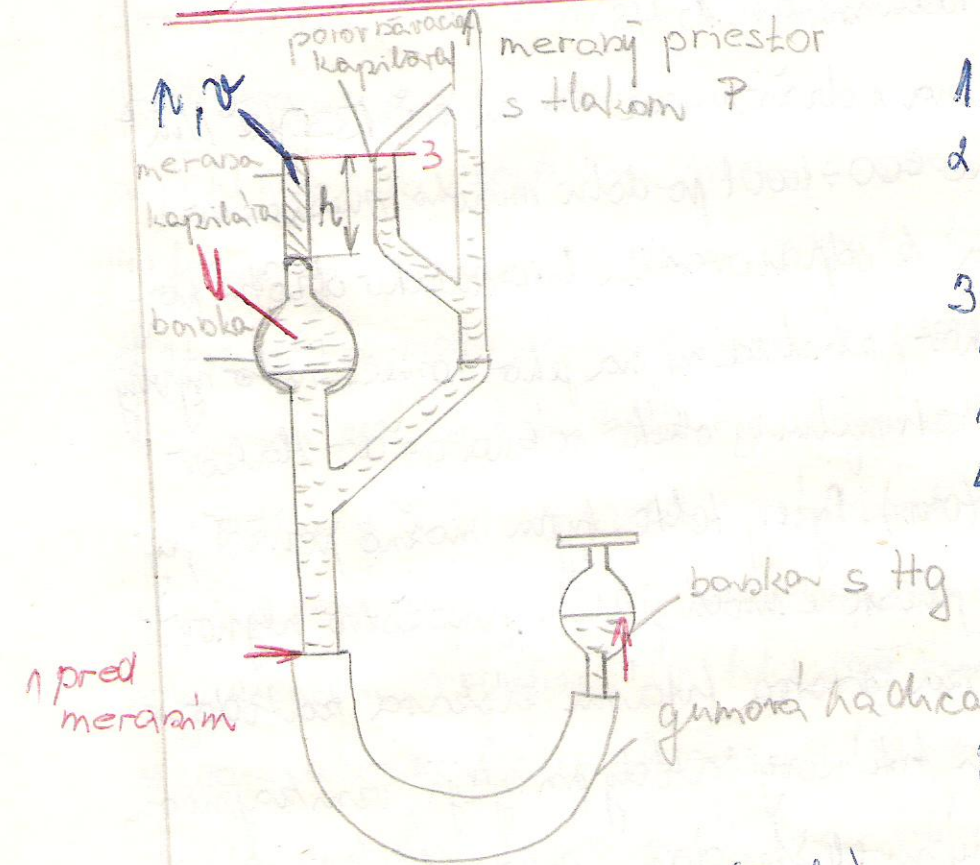 porovnávacia
kapilára
meraný priestor
s tlakom P
p, v
meraná
kapilára
h
3
V
banka
1
2
3
banka s Hg
gumová hadica
1 pred
meraním